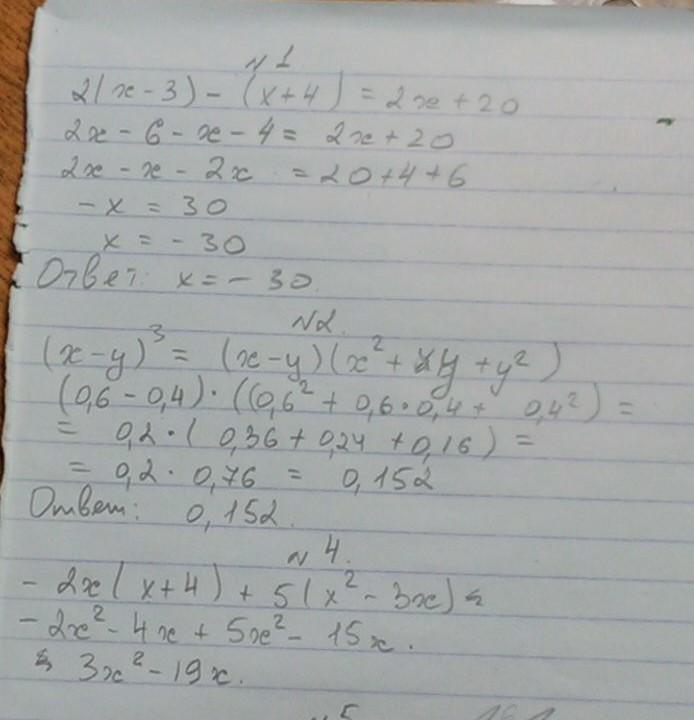 N 1
2(x - 3) - (x + 4) = 2x + 20
2x - 6 - x - 4 = 2x + 20
2x - x - 2x = 20 + 4 + 6
- x = 30
x = - 30
Ответ: x = - 30.
N2.
(x - y)³ = (x - y)(x² + xy + y²)
(0,6 - 0,4) · ((0,6² + 0,6 · 0,4 + 0,4²) =
= 0,2 · ( 0,36 + 0,24 + 0,16) =
= 0,2 · 0,76 = 0,152
Ответ: 0,152.
N 4.
- 2x( x + 4) + 5(x² - 3x) =
- 2x² - 4x + 5x² - 15x.
= 3x² - 19x.
N5